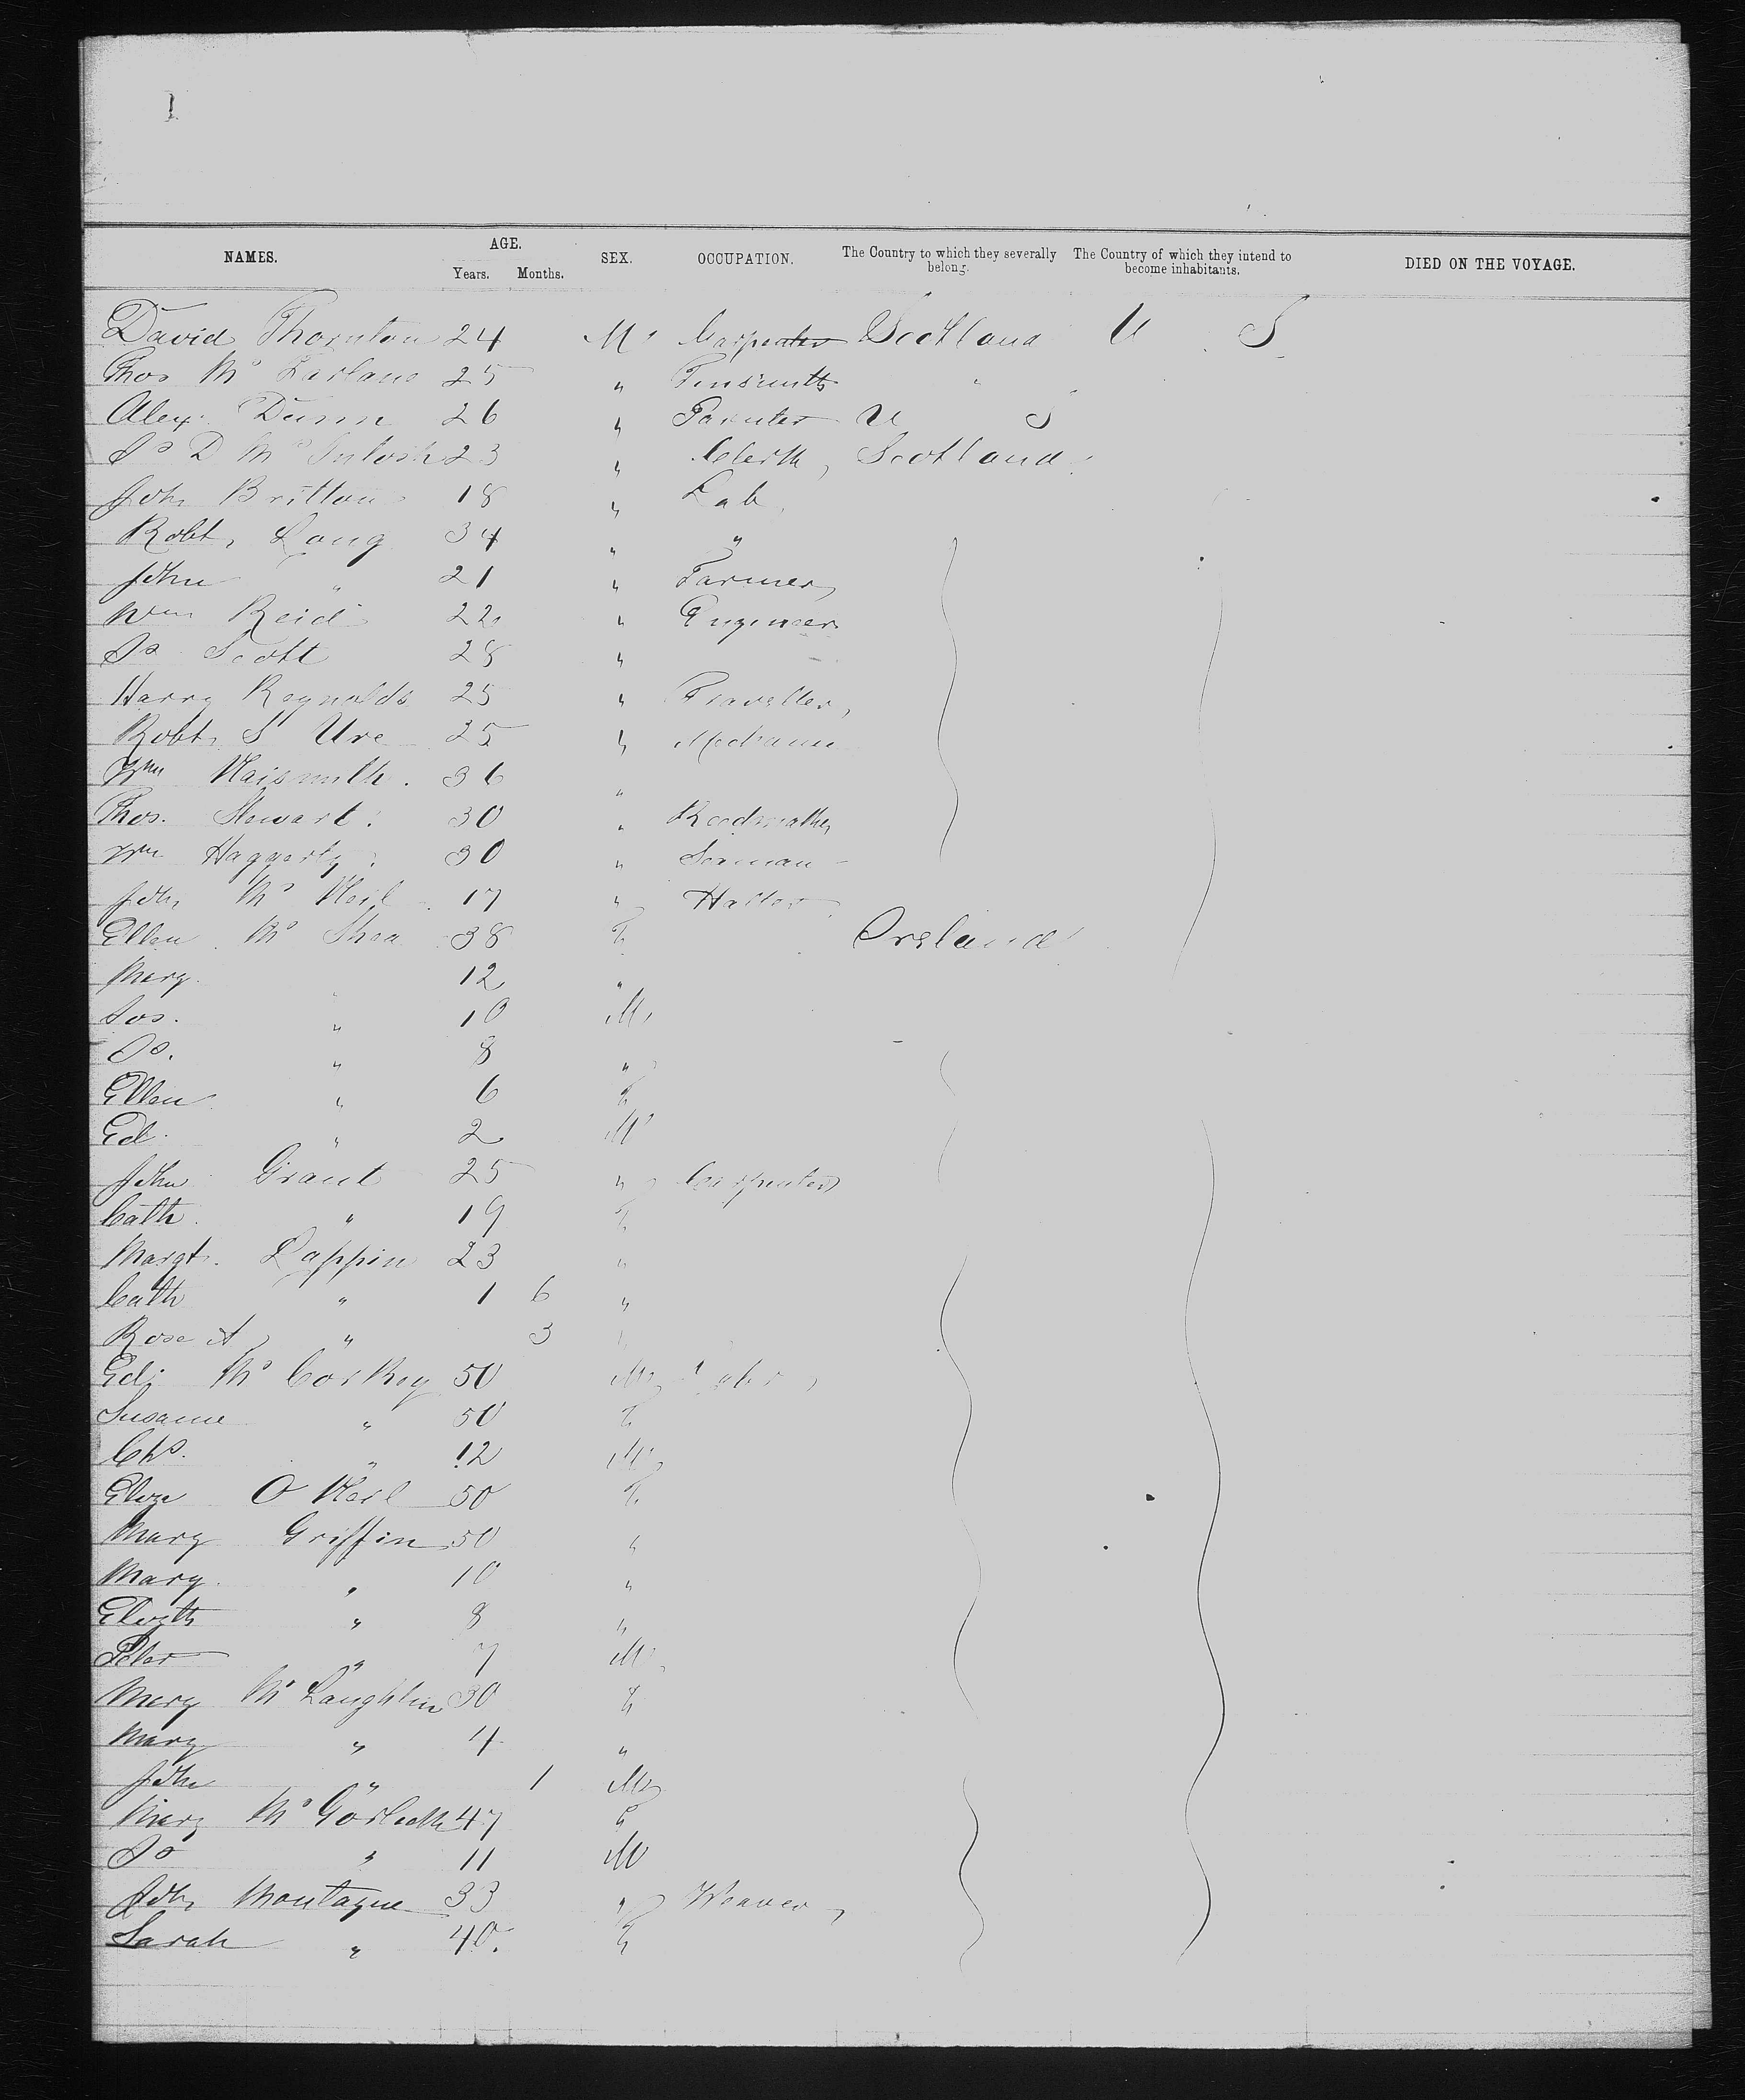 NAMES. AGE. Years. Months. SEX. OCCUPATION. The Country to which they severally belong. The Country of which they intend to become inhabitants. DIED ON THE VOYAGE.
David Thornton 24 M Carpenter Scotland U S
Thos Mc Farlane 25 " Tinsmith "
Alex. Dunn 26 " Painter U S
Js D Mc Intosh 23 " Clerk, Scotland
Joh Britton 18 " Lab.
Robt. Lang 34 " "
John " 21 " Farmer
Wm Reid 22 " Engineer
Js Scott 28 "
Harry Reynolds 25 " Traveller,
Robt. S Ure 25 "
Wm Naismith. 36 "
Thos. Stewart. 30 " Reedmaker
Wm Haggerty 30 " Seaman
Joh. Mc Neil 17 " Hatter
Ellen Mc Shea 38 F Ireland
Mary. " 12 "
Jos. " 10 M
Js. " 8 "
Ellen " 6 F
Ed. " 2 M
John Grant 25 " Carpenter
Cath. " 19 F
Margt. Lappin 23 "
Cath " 1 6 "
Rose A " 3 "
Ed. Mc Corkey 50 M
Susanne " 50 F
Chs. " 12 M
Eliza O Neil 50 F
Mary Griffin 50 "
Mary. " 10 "
Elizth " 8 "
Peter " 7 M
Mary Mc Laughlin 30 F
Mary " 4 "
John " 1 M
Mary 47 F
Js " 11 M
Joh. Montague 33 " Weaver,
Sarah " 40. F